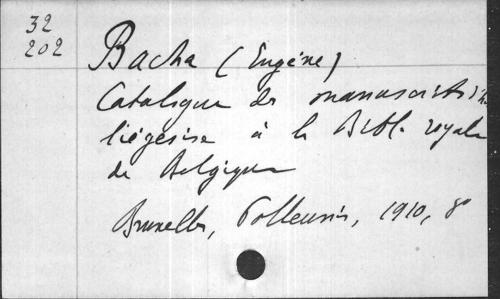 32
202
Bacha (Eugène)
Catalogue des manuscrits
à la Bibl. royale
de Belgique
Bruxelles, Polleunis, 1910, 8°